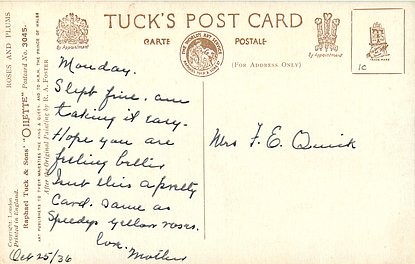 TUCK'S POST CARD
By Appointment
CARTE
POSTALE
By Appointment
(FOR ADDRESS ONLY)
TRADE MARK
1c
ROSES AND PLUMS
Raphael Tuck & Sons' "OILETTE" Postcard No. 3045.
ART PUBLISHERS TO THEIR MAJESTIES THE KING & QUEEN, AND TO H.R.H. THE PRINCE OF WALES
After the Original Painting by R. A. FOSTER
Copyright London
Printed in England.
Monday.
Slept fine. am
taking it easy.
Hope you are
feeling better
Isnt this a pretty
Card. same as
Speedys yellow roses.
Lov.
Mother
Oct 25/36
Mrs F. E. Quick